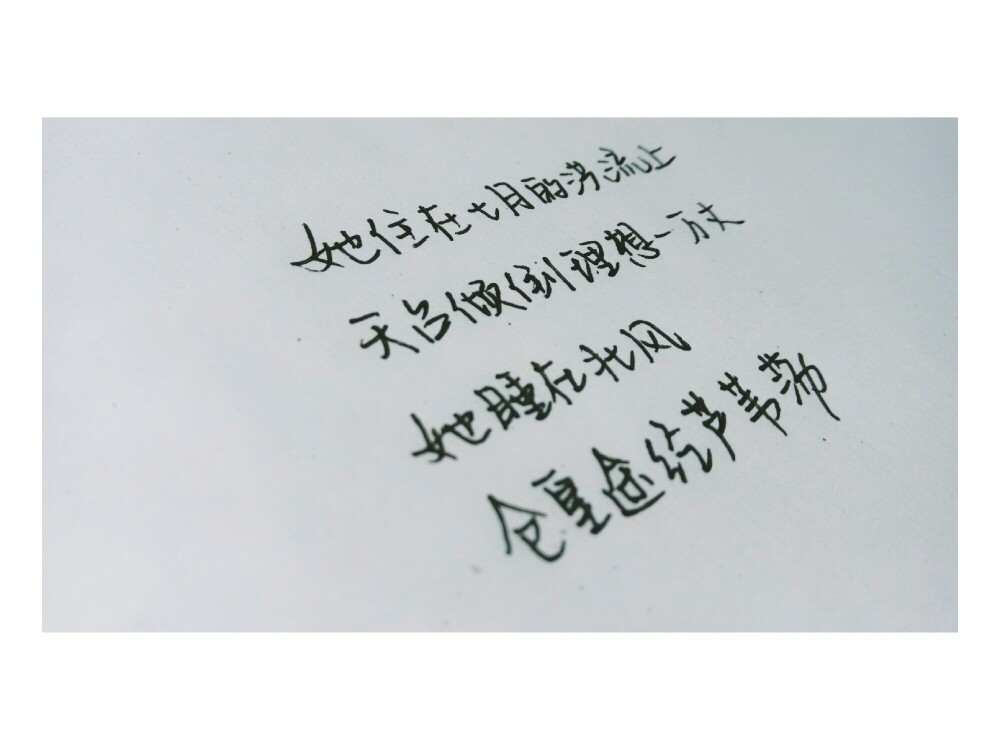 她住在七月的洪流上
天台倾倒理想一万丈
她睡在北风
仓皇途经芦苇荡